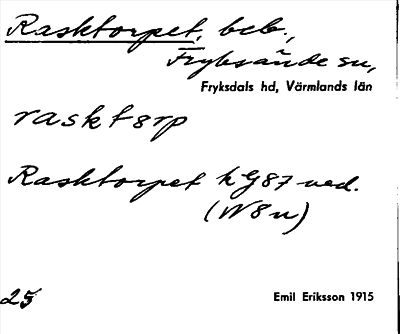 Rasktorpet, beb.,
Fryksände sn,
Fryksdals hd, Värmlands län
rasktərp
Rasktorpet h G87 ned.
(N8u)
25
Emil Eriksson 1915